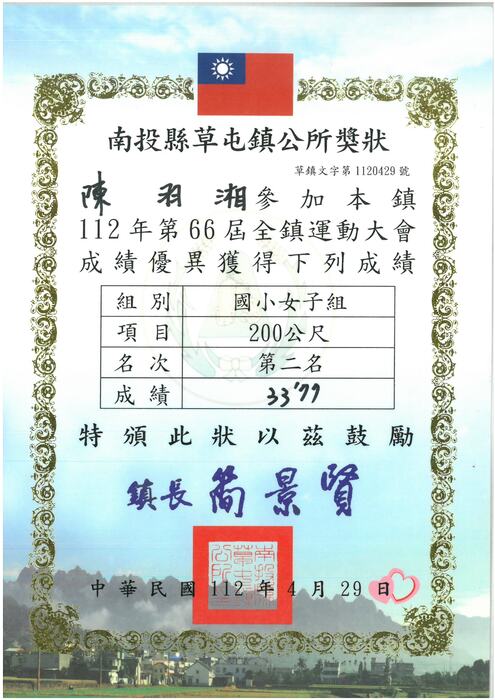 南投縣草屯鎮公所獎狀
草鎮文字第1120429號
陳羽湘參加本鎮
112年第66屆全鎮運動大會
成績優異獲得下列成績
組別 國小女子組
項目 200公尺
名次 第二名
成績 33"77
特頒此狀以茲鼓勵
鎮長 簡景賢
南投縣草屯鎮公所
中華民國112年4月29日